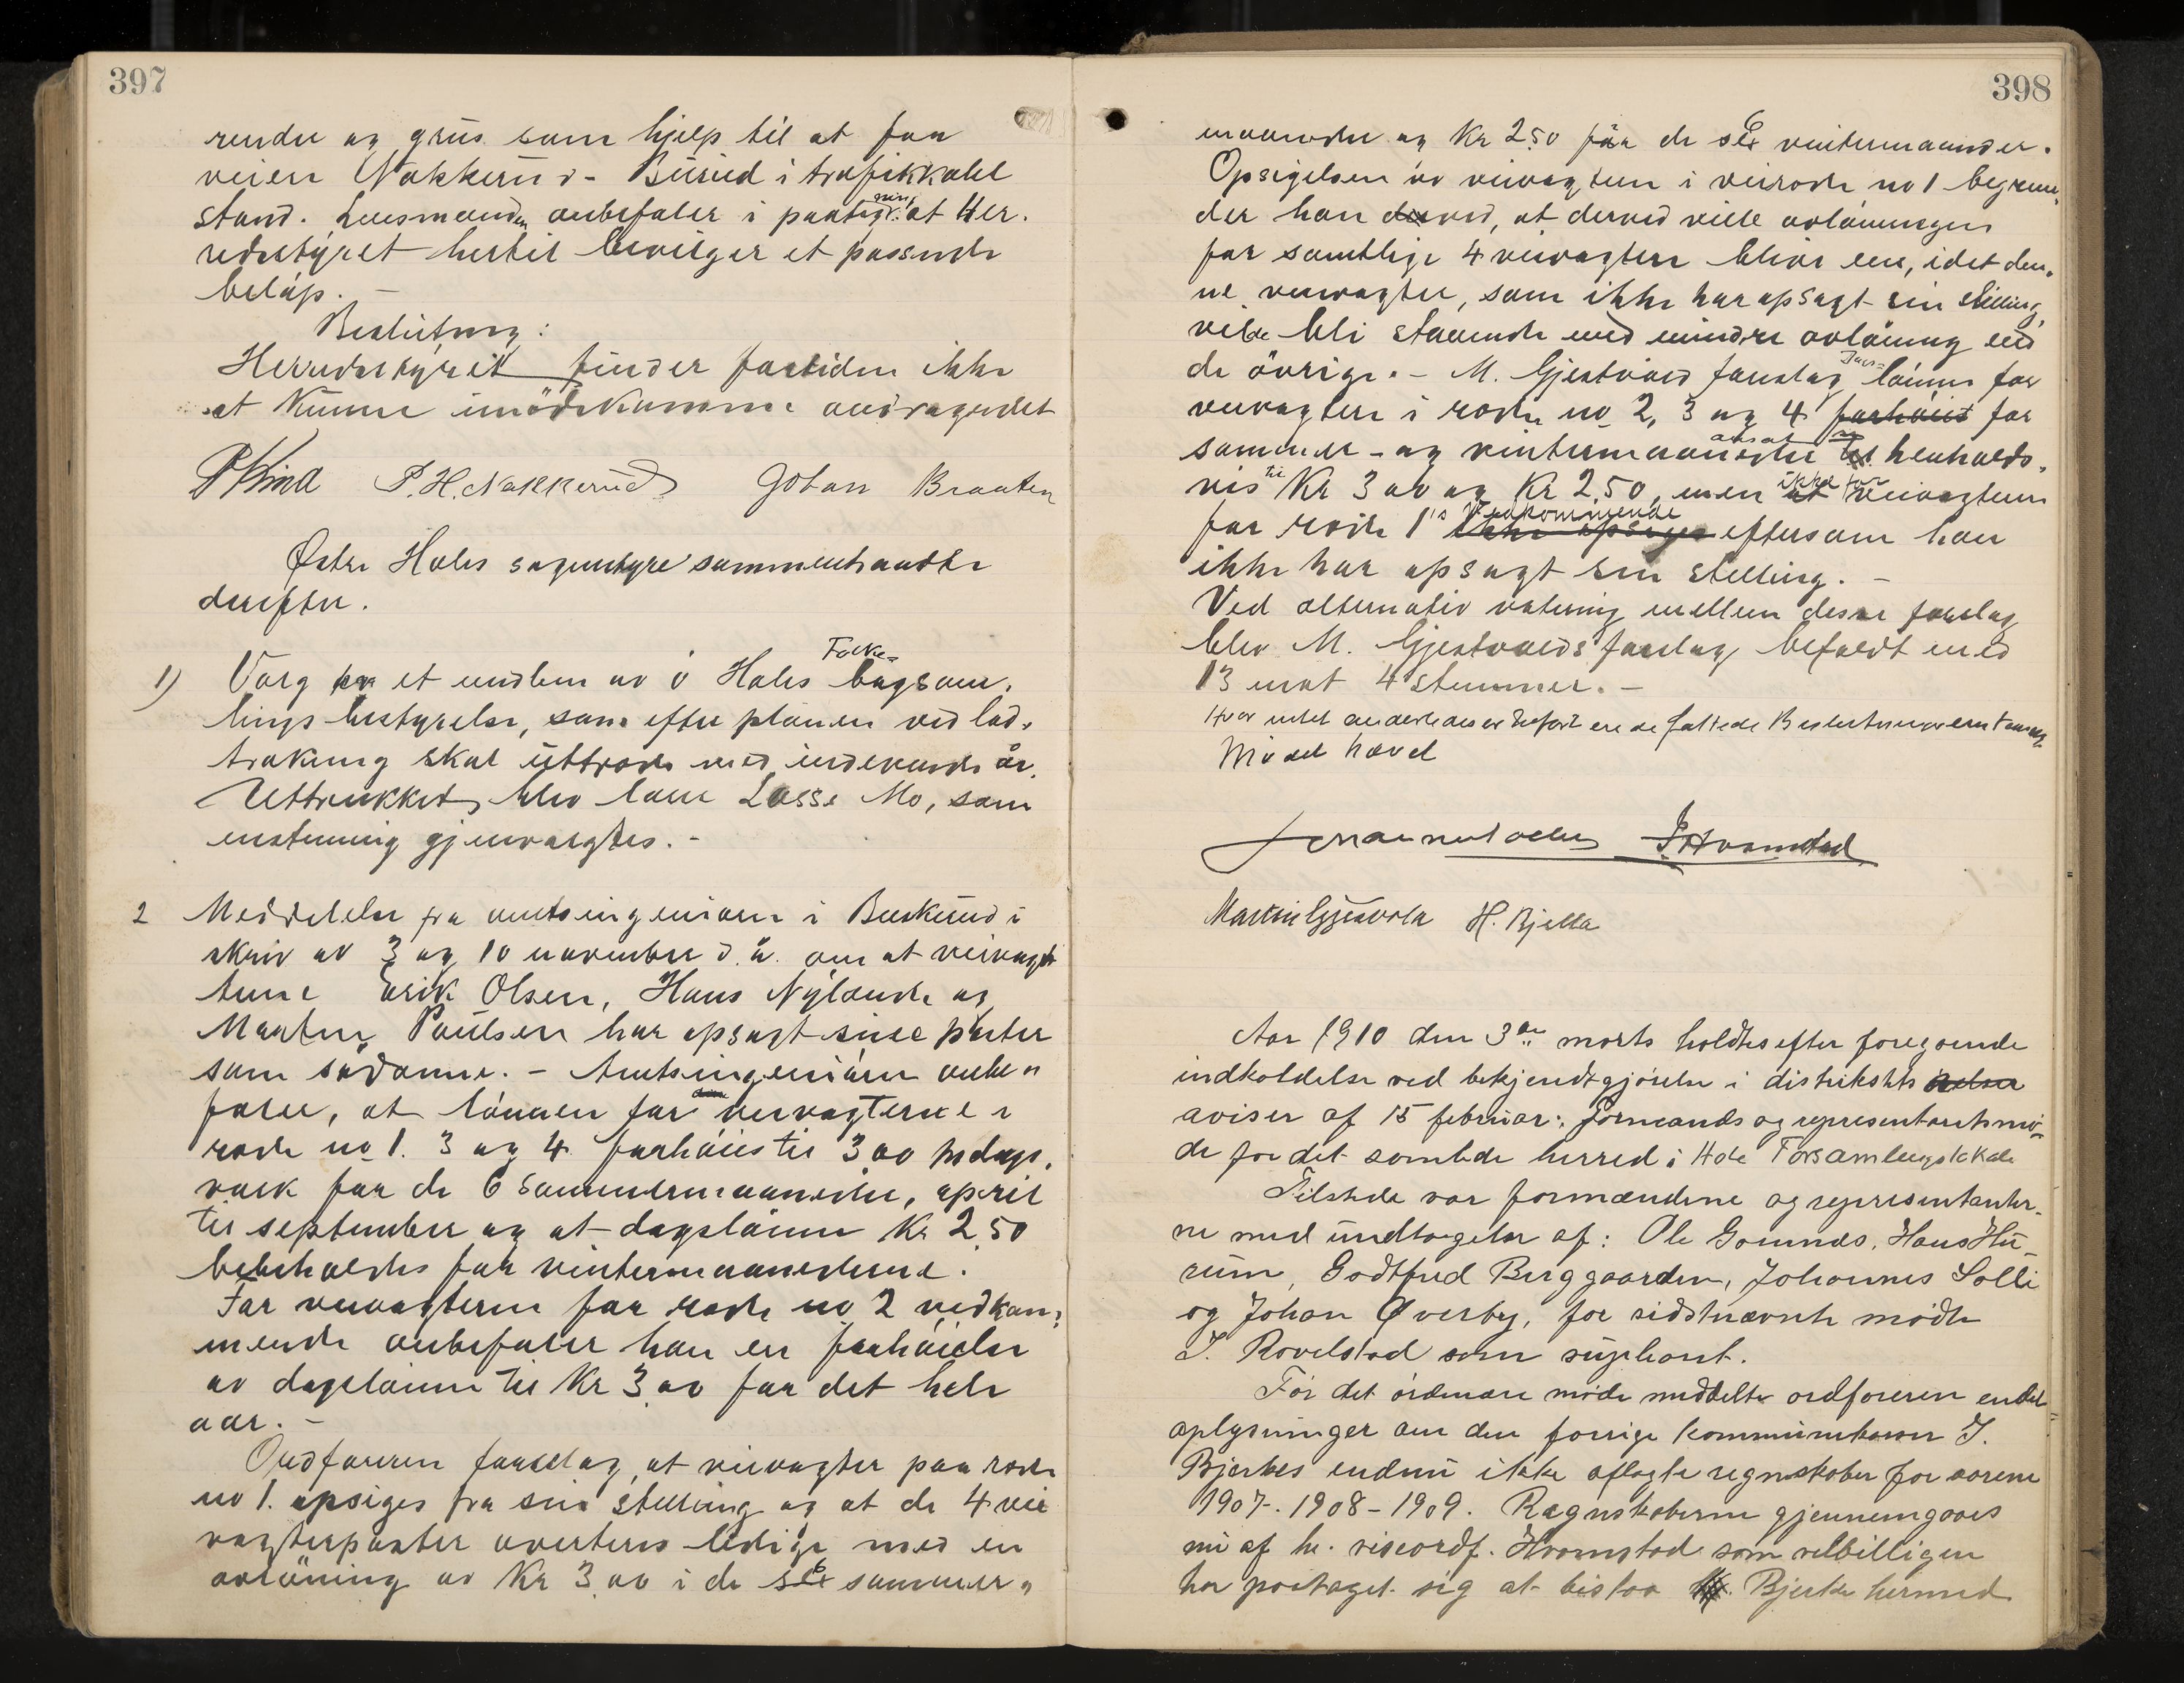 397
rendse og grus som hjelp til at faa
veien Nakkerud - Burud i trafikkabel
stand. Lensmanden anbefaler i paategning at Her-
redsstyret hertil bevilger et passende
beløp. -
Beslutning:
Herredsstyret finder fortiden ikke
at kunne imødekomme andragendet
P Kind P. H. Nakkerud Johan Braaten
Østre Holes sognestyre sammentraadte
derefter.
1) Valg paa et medlem av ø Holes Folke-
bogsam-
lings bestyrelse, som efter planen ved lod-
trækning skal uttræde med indeværende år.
Uttrukket blev lærer Lasse Mo, som
enstemmig gjenvalgtes. -
2 Meddelelse fra amtsingeniøren i Buskerud i
skriv av 3 og 10 november d. å. om at veivogt-
terne Erik Olsen, Hans Nylænde og
Martin Paulsen har opsagt sine poster
som sådanne. - Amtsingeniøren anbe-
faler, at lønnen for veivogterne i
rode no 1. 3 og 4 forhøies til 3.00 pr dags-
værk for de 6 sommermaaneder, april
til september og at dagslønnen Kr 2.50
beholdes for vintermaanederne.
For veivogteren for rode no 2 vedkom-
mende anbefaler han en forhøielse
av dagslønnen til Kr 3.00 for det hele
aar. -
Ordføreren foreslog, at veivogter paa rode
no 1. opsiges fra sin stilling og at de 4 vei
vogterposter averteres ledige med en
avlønning av Kr 3.00 i de 6 sommer-
398
maaneder og Kr 2.50 for de 6 vintermaaneder.
Opsigelsen av veivogteren i veirode no 1 begrun-
der han derved, at derved ville avlønningen
for samtlige 4 veivogtere blive ens, idet den-
ne veivogter, som ikke har opsagt sin stilling,
vilde bli staaende med mindre avlønning end
de øvrige. - M. Gjestvold foreslog Dags-lønnen for
veivogtere i rode no 2, 3 og 4 forhøiet for
sommer- og vintermaaneder ansat henholds-
vis til Kr 3.00 og Kr 2.50, men ikke for veivogteren
for rode 1's Vedkommende eftersom han
ikke har opsagt sin stilling. -
Ved alternativ votering mellem disse forslag
blev M. Gjestvolds forslag befaldt med
13 mot 4 stemmer. -
Hvor intet anderledes er tilført ere de fattede Beslutninger enstemmig.
Mødet hævet
Martin Gjestvold H. Bjella
Aar 1910 den 3die marts holdtes efter foregaaende
indkaldelse ved bekjendtgjørelse i distriktets
aviser af 15 februar: formands og representantsmø-
de for det samlede herred i Hole Forsamlingslokale
Tilstede var formændene og representanter-
ne med undtagelse af: Ole Gomnæs, Hans Hu-
rum, Godtfred Berggaarden, Johannes Solli
og Johan Øverby, for sidstnævnte mødte
I. Rovelstad som suppleant.
Før det ordinære møde meddelte ordføreren endel
oplysninger om den forrige kommunekasser I.
Bjerkes endnu ikke aflagte regnskaber for aarene
1907-1908-1909. Regnskaberne gjennemgaaes
nu af hr. viceordf. Hvamstad som velvilligen
har paataget sig at bistaa Bjerke hermed